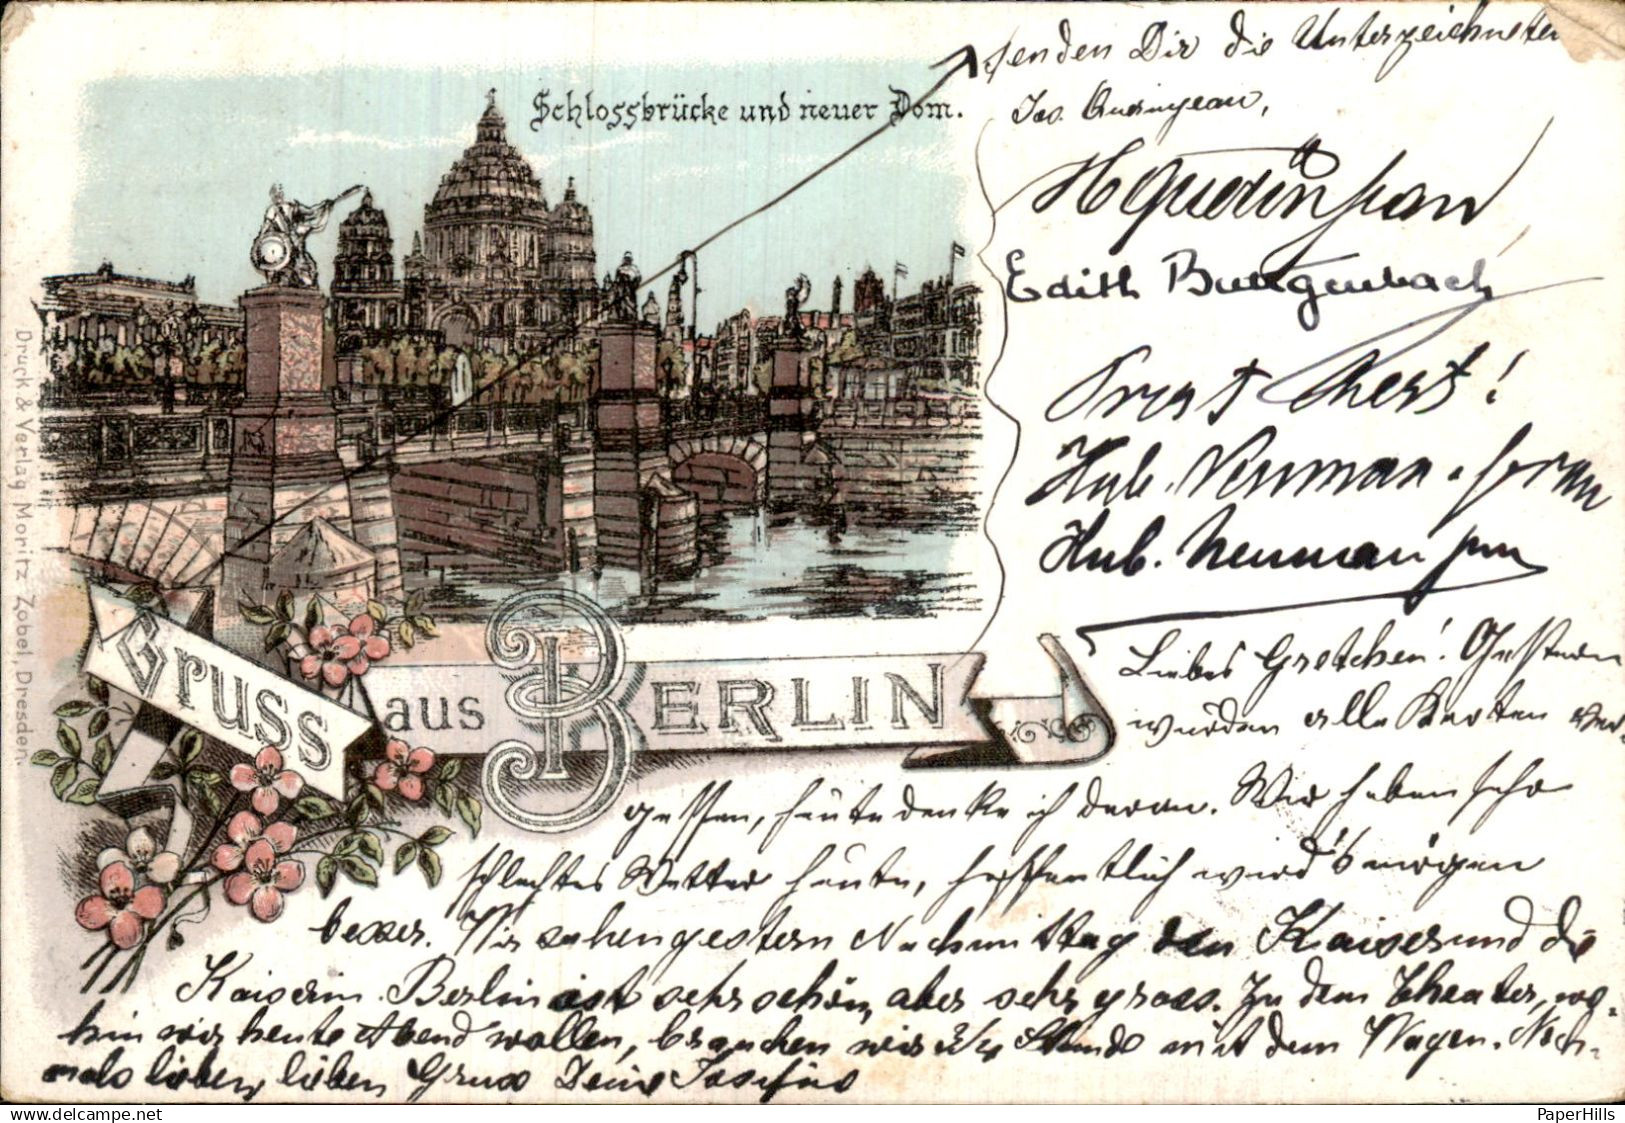 senden Dir die Unterzeichneten
Schlossbrücke und neuer Dom.
Jos.
H
Edith
Prost Rest!
Hub. Neuman
Hub. Neuman jun
Druck & Verlag Moritz Zobel, Dresden.
Gruss aus Berlin
Liebes Gretchen! Gestern
wurden alle Karten ver-
gessen, heute denke ich daran. Wir haben sehr
schlechtes Wetter heute, hoffentlich wird's morgen
besser. Wir sahen gestern Nachmittag den Kaiser und die
Kaiserin. Berlin ist sehr schön, aber sehr gross. Zu dem Theater, wo-
hin wir heute Abend wollen, brauchen wir 3/4 Stunde mit dem Wagen. Noch-
mals lieben, lieben Gruss Deine Josefine
PaperHills